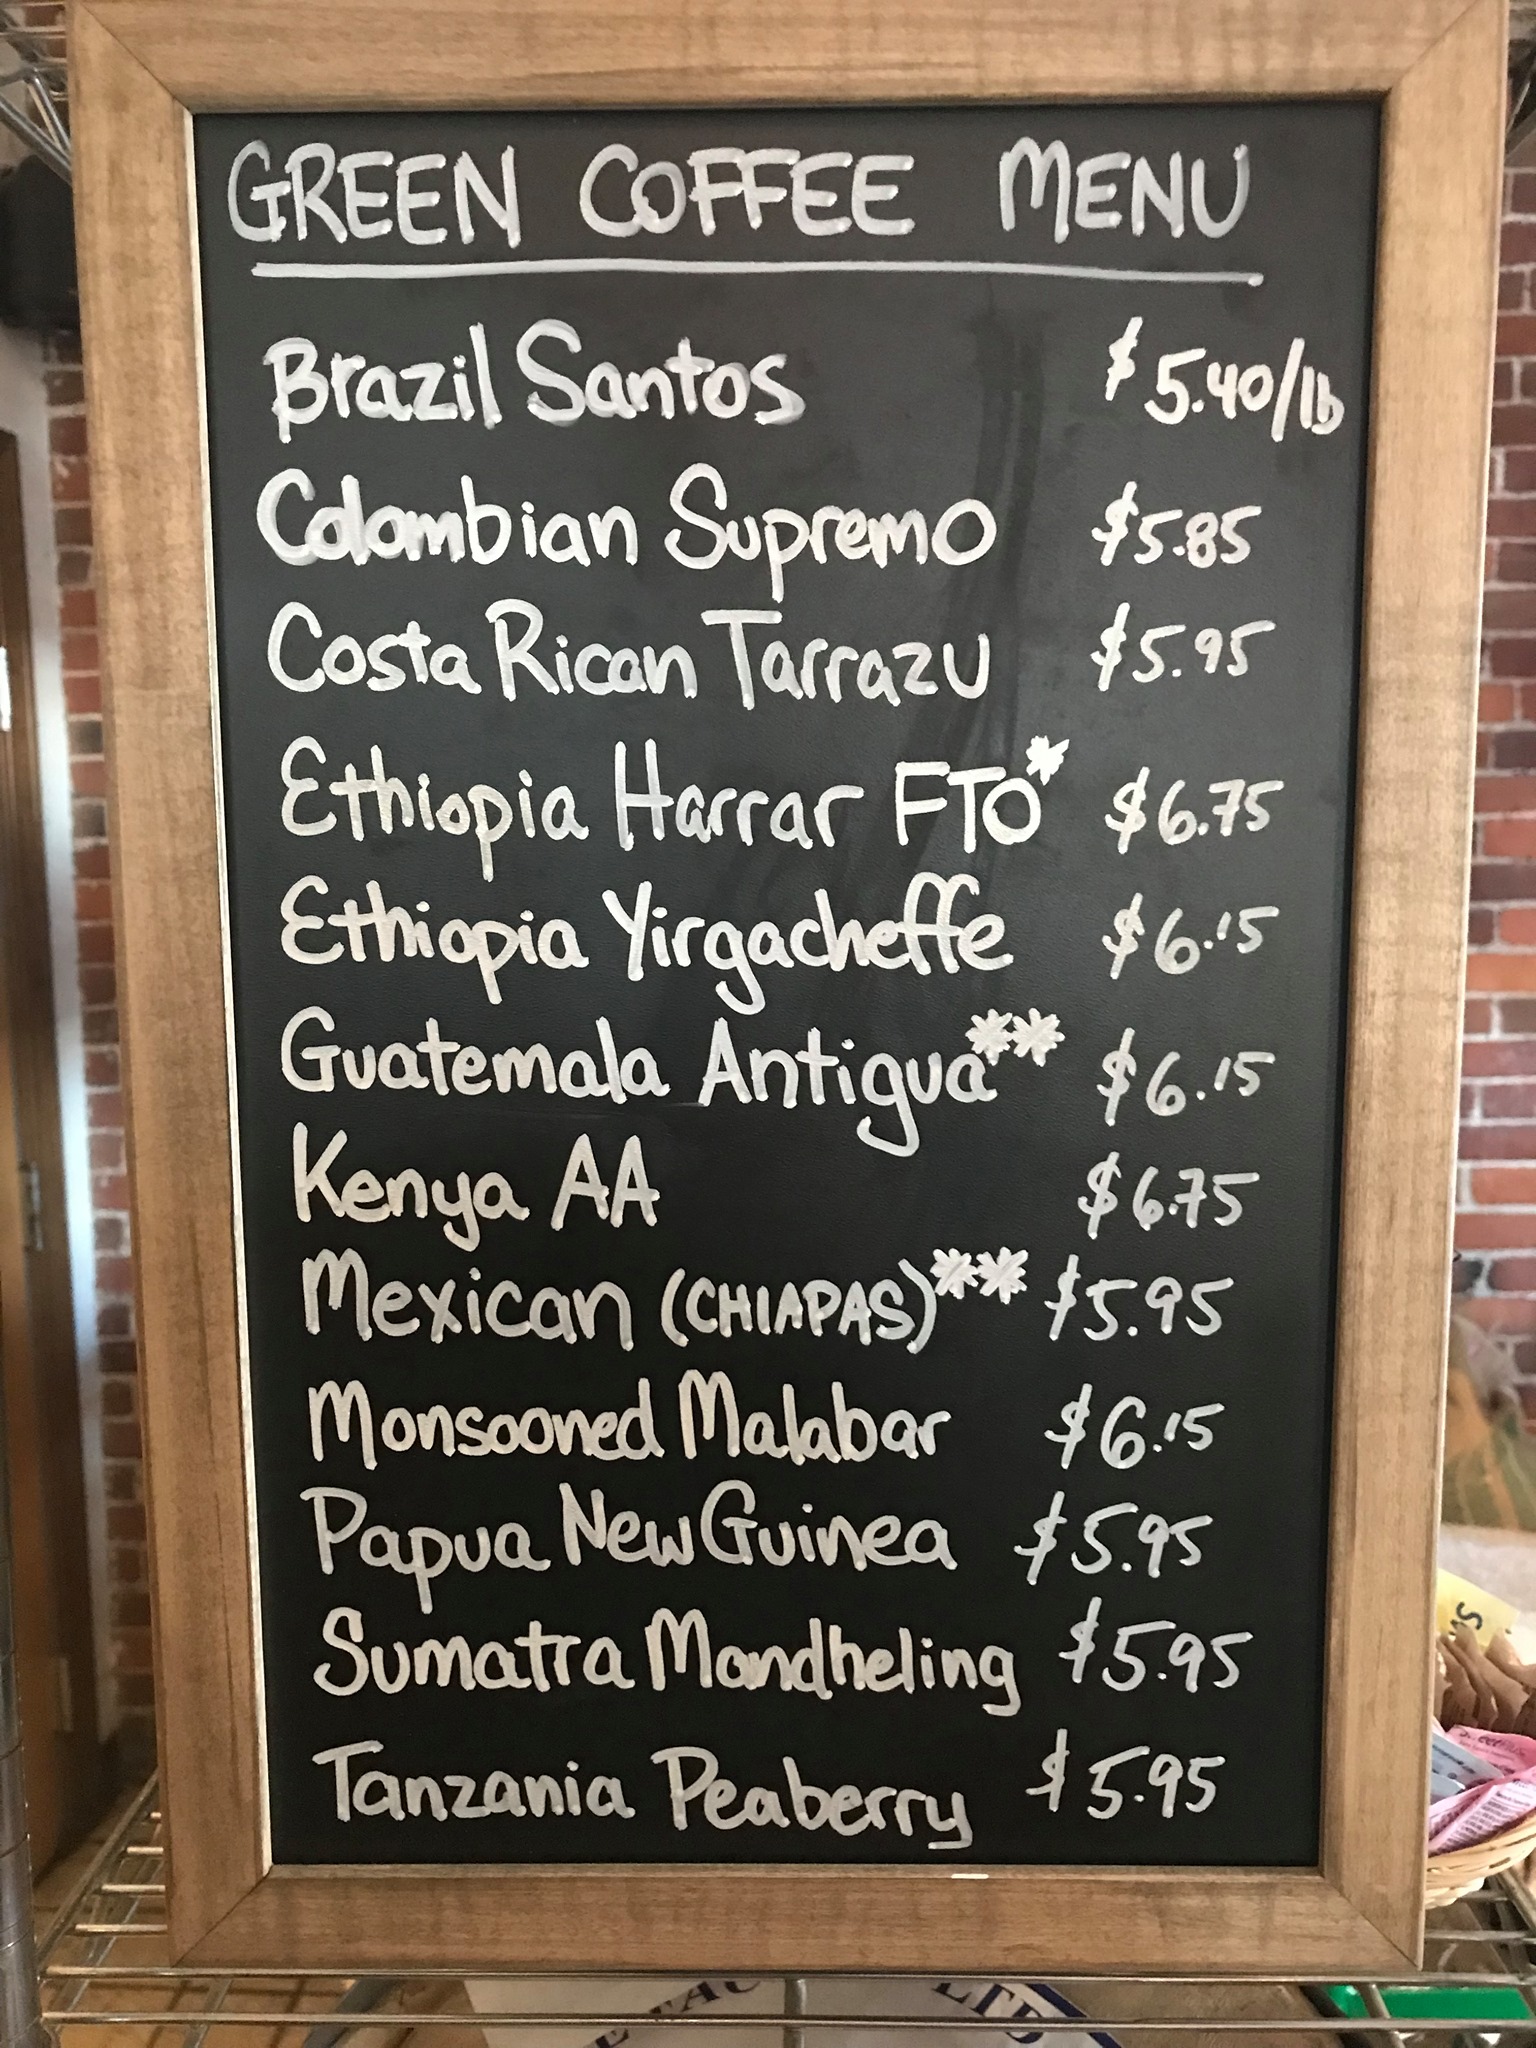 GREEN COFFEE MENU
Brazil Santos $5.40/lb
Colombian Supremo $5.85
Costa Rican Tarrazu $5.95
Ethiopia Harrar FTO* $6.75
Ethiopia Yirgacheffe $6.15
Guatemala Antigua** $6.15
Kenya AA $6.75
Mexican (CHIAPAS)** $5.95
Monsooned Malabar $6.15
Papua New Guinea $5.95
Sumatra Mandheling $5.95
Tanzania Peaberry $5.95
LTD